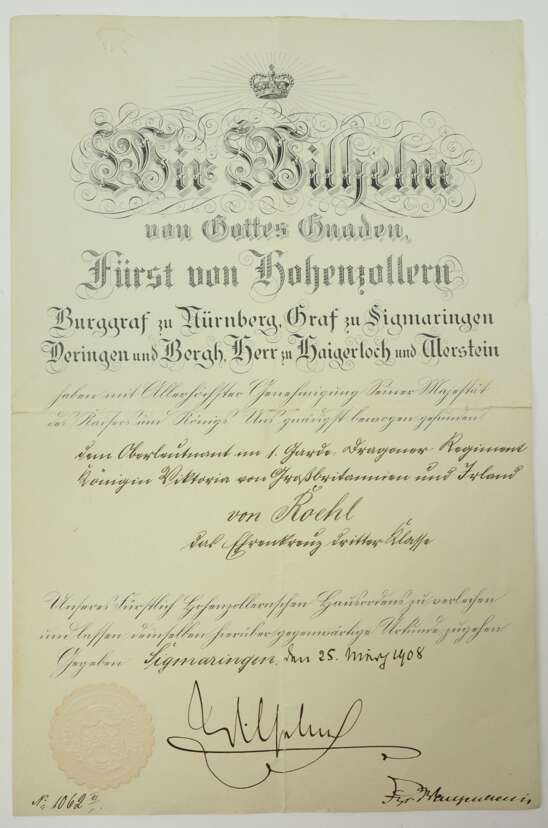 Wir Wilhelm
von Gottes Gnaden,
Fürst von Hohenzollern
Burggraf zu Nürnberg, Graf zu Sigmaringen
Veringen und Bergh, Herr zu Haigerloch und Werstein
haben mit Allerhöchster Genehmigung Seiner Majestät
des Kaisers und Königs Uns gnädigst bewogen gefunden
dem Oberleutnant im 1. Garde-Dragoner-Regiment
Königin Viktoria von Großbritannien und Irland
von Roehl
das Ehrenkreuz dritter Klasse
Unseres Fürstlich Hohenzollernschen Hausordens zu verleihen
und lassen demselben hierüber gegenwärtige Urkunde zugehen
Gegeben Sigmaringen, den 25. März 1908
Wilhelm
No 1062